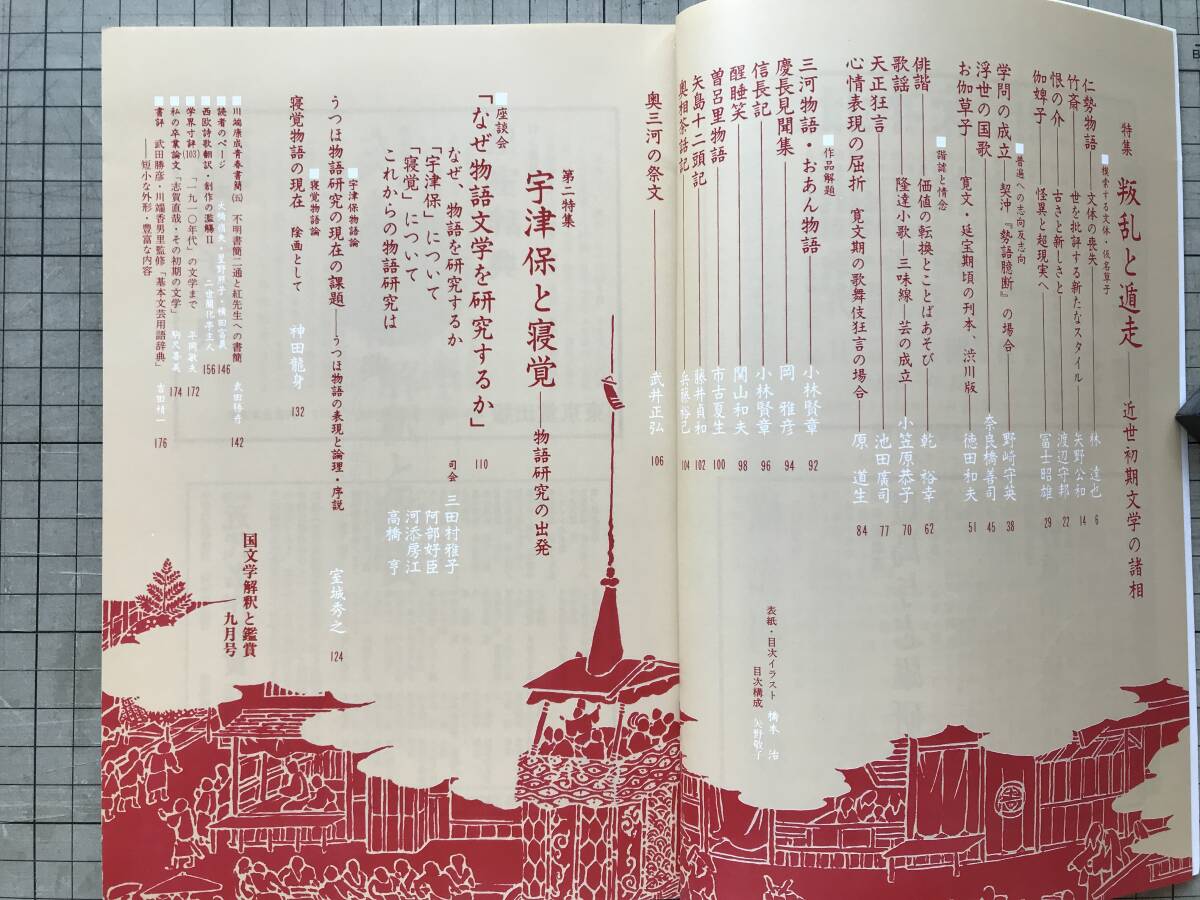 特集 叛乱と遁走――近世初期文学の諸相
模索する文体・仮名草子
仁勢物語――文体の喪失――林 達也 6
竹斎――世を批評する新たなスタイル――矢野公和 14
恨の介――古さと新しさと――渡辺守邦 22
伽婢子――怪異と超現実へ――冨士昭雄 29
普遍への志向反志向
学問の成立――契沖『勢語臆断』の場合――野崎守英 38
浮世の国歌――奈良橋善司 45
お伽草子――寛文・延宝期頃の刊本、渋川版――徳田和夫 51
諧謔と情念
俳諧――価値の転換とことばあそび――乾 裕幸 62
歌謡――隆達小歌――三味線――芸の成立――小笠原恭子 70
天正狂言――池田廣司 77
心情表現の屈折 寛文期の歌舞伎狂言の場合――原 道生 84
作品解題
三河物語・おあん物語――小林賢章 92
慶長見聞集――岡 雅彦 94
信長記――小林賢章 96
醒睡笑――関山和夫 98
曽呂里物語――市古夏生 100
矢島十二頭記――藤井貞和 102
奥相茶話記――兵藤裕己 104
奥三河の祭文――武井正弘 106
表紙・目次イラスト 橋本 治
目次構成 矢野敬子
第二特集
宇津保と寝覚――物語研究の出発
座談会
「なぜ物語文学を研究するか」 110
なぜ、物語を研究するか
「宇津保」について
「寝覚」について
これからの物語研究は
司会 三田村雅子
阿部好臣
河添房江
高橋 亨
宇津保物語論
うつほ物語研究の現在の課題――うつほ物語の表現と論理・序説 室城秀之 124
寝覚物語論
寝覚物語の現在 陰画として 神田龍身 132
川端康成青春書簡(五) 不明書簡二通と紅先生への書簡 武田勝彦 142
読者のページ 大橋信夫・星野祥子・横田富義 146
西欧詩歌翻訳・創作の濫觴Ⅱ 二世蘭化亭主人 156
学界寸評(103)「一九一〇年代」の文学まで 平岡敏夫 172
私の卒業論文「志賀直哉・その初期の文学」 駒尺喜美 174
書評 武田勝彦・川端香男里監修『基本文芸用語辞典』 吉田精一 176
――短小な外形・豊富な内容
国文学解釈と鑑賞
九月号